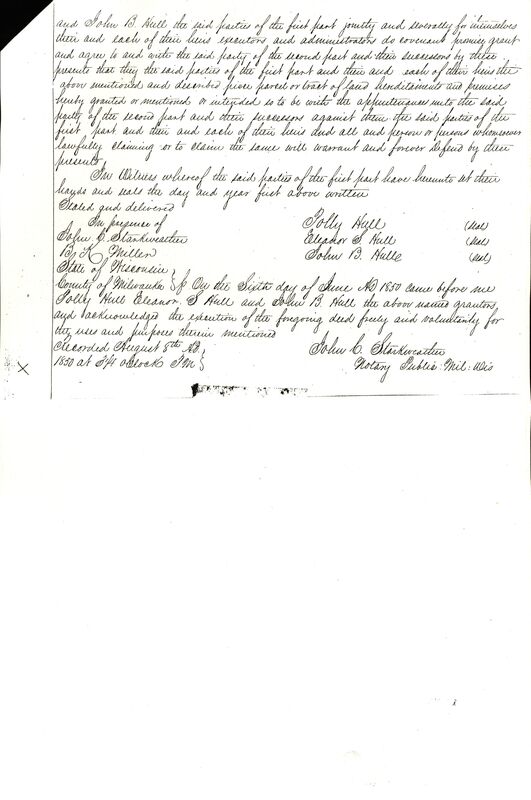 and John B Hull the said parties of the first part jointly and severally for themselves
their and each of their heirs executors and administrators do covenant promise grant
and agree to and with the said party of the second part and their successors by these
presents that they the said parties of the first part and their and each of their heirs the
above mentioned and described piece parcel or tract of land hereditaments and premises
hereby granted or mentioned or intended so to be with the appurtenances unto the said
party of the second part and their successors against them the said parties of the
first part and their and each of their heirs and all and person or persons whomsoever
lawfully claiming or to claim the same will warrant and forever Defend by these
presents
In Witness whereof the said parties of the first part have hereunto set their
hands and seals the day and year first above written
Sealed and delivered
In presence of Polly Hull (Seal)
John C. Starkweather Eleanor S Hull (Seal)
B. K Miller John B Hull (Seal)
State of Wisconsin }
County of Milwaukie } On the Sixth day of June AD 1850 came before me
Polly Hull Eleanor. S Hull and John B Hull the above named grantors,
and acknowledged the execution of the foregoing deed freely and voluntarily for
the uses and purposes therein mentioned
Recorded August 8th AD, } John C. Starkweather
1850 at o'clock P.M } Notary Public Mil: Wis
X